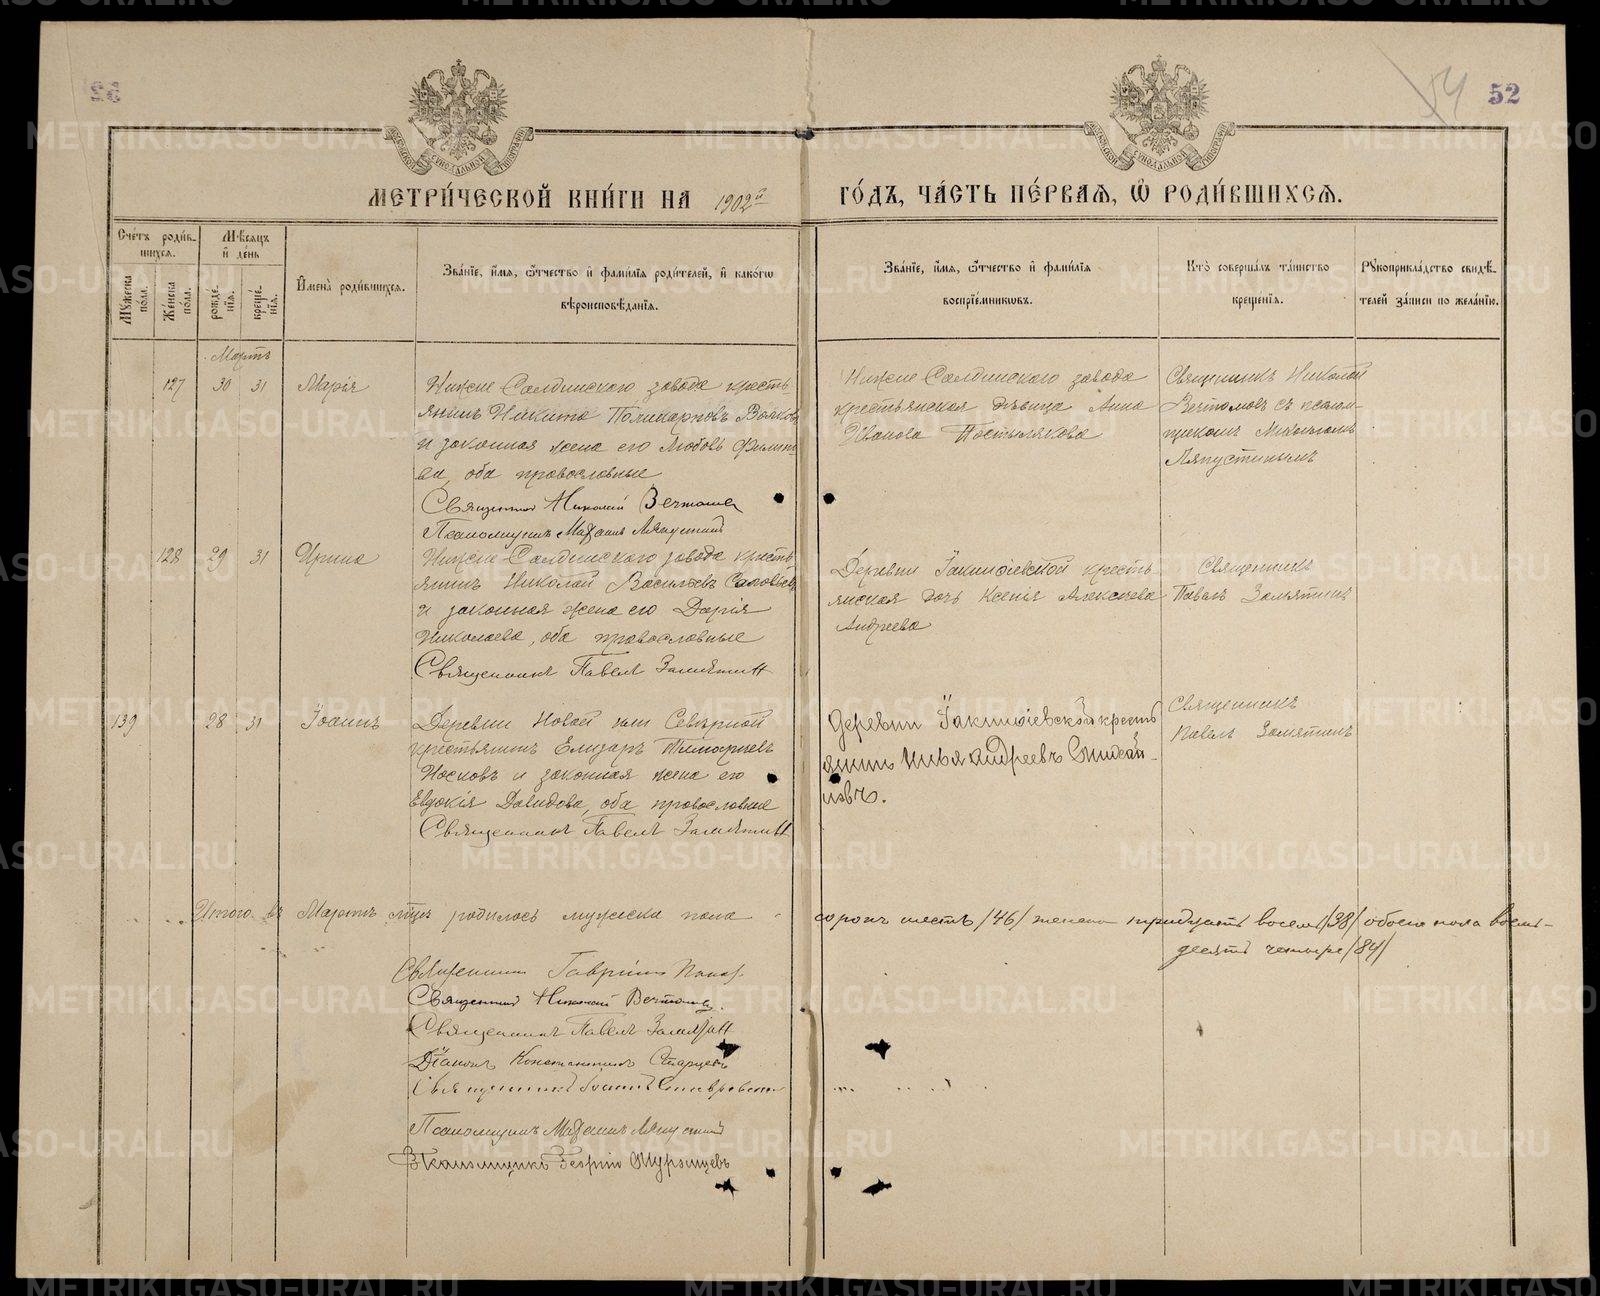 52
54
МЕТРИ́ЧЕСКОЙ КНИ́ГИ НА 1902й
ГО́ДЪ, ЧА́СТЬ ПЕ́РВАЯ, Ѡ РОДИ́ВШИХСЯ.
Сче́тъ роди́в-
шихся.
Му́жеска по́ла.
Же́нска по́ла.
Мѣ́сяцъ и де́нь
рожде́нїя.
креще́нїя.
Имена̀ роди́вшихся.
Зва́нїе, и́мя, ѻ́тчество и фами́лїя роди́телей, и како́гѡ
вѣроисповѣ́данїя.
Зва́нїе, и́мя, ѻ́тчество и фами́лїя
воспрїе́мниковъ.
Кто̀ соверша́лъ та́инство
креще́нїя.
Рꙋкоприкла́дство свидѣ́-
телей за́писи по жела́нїю.
Мартъ
127 30 31 Марія
Нижне-Салдинскаго завода кресть-
янинъ Никита Поликарповъ Волковъ
и законная жена его Любовь Филипо-
ва, оба православные
Священникъ Николай Вечтомовъ
Псаломщикъ Ляпустинъ
Нижне-Салдинскаго завода
крестьянская дѣвица Анна
Иванова Постылякова
Священникъ Николай
Вечтомовъ съ псалом-
щикомъ
Ляпустинымъ
128 29 31 Ирина
Нижне-Салдинскаго завода кресть-
янинъ Николай Васильевъ Соловьевъ
и законная жена его Дарія
Николаева, оба православные
Священникъ Павелъ Замятинъ
Деревни Іакинѳіевской кресть-
янская дочь Ксенія Алексѣева
Андреева
Священникъ
Павелъ Замятинъ
139 28 31 Іоаннъ
Деревни Новой или Северной
крестьянинъ Елизаръ
Носковъ и законная жена его
Евдокія Давидова, оба православные
Священникъ Павелъ Замятинъ
Деревни Іакинѳіевской кресть
янинъ Илья Андреевъ
Священникъ
Павелъ Замятинъ
Итого въ Мартѣ м҃цѣ родилось мужска пола
сорокъ шесть /46/ женска тридцать восемь /38/ обоего пола восемь-
десятъ четыре /84/
Священникъ Гавріилъ
Священникъ Николай Вечтомовъ.
Священникъ Павелъ Замятинъ
Діаконъ Константинъ Старцевъ
Священникъ
Псаломщикъ Ляпустинъ
Псаломщикъ Георгій
METRIKI.GASO-URAL.RU